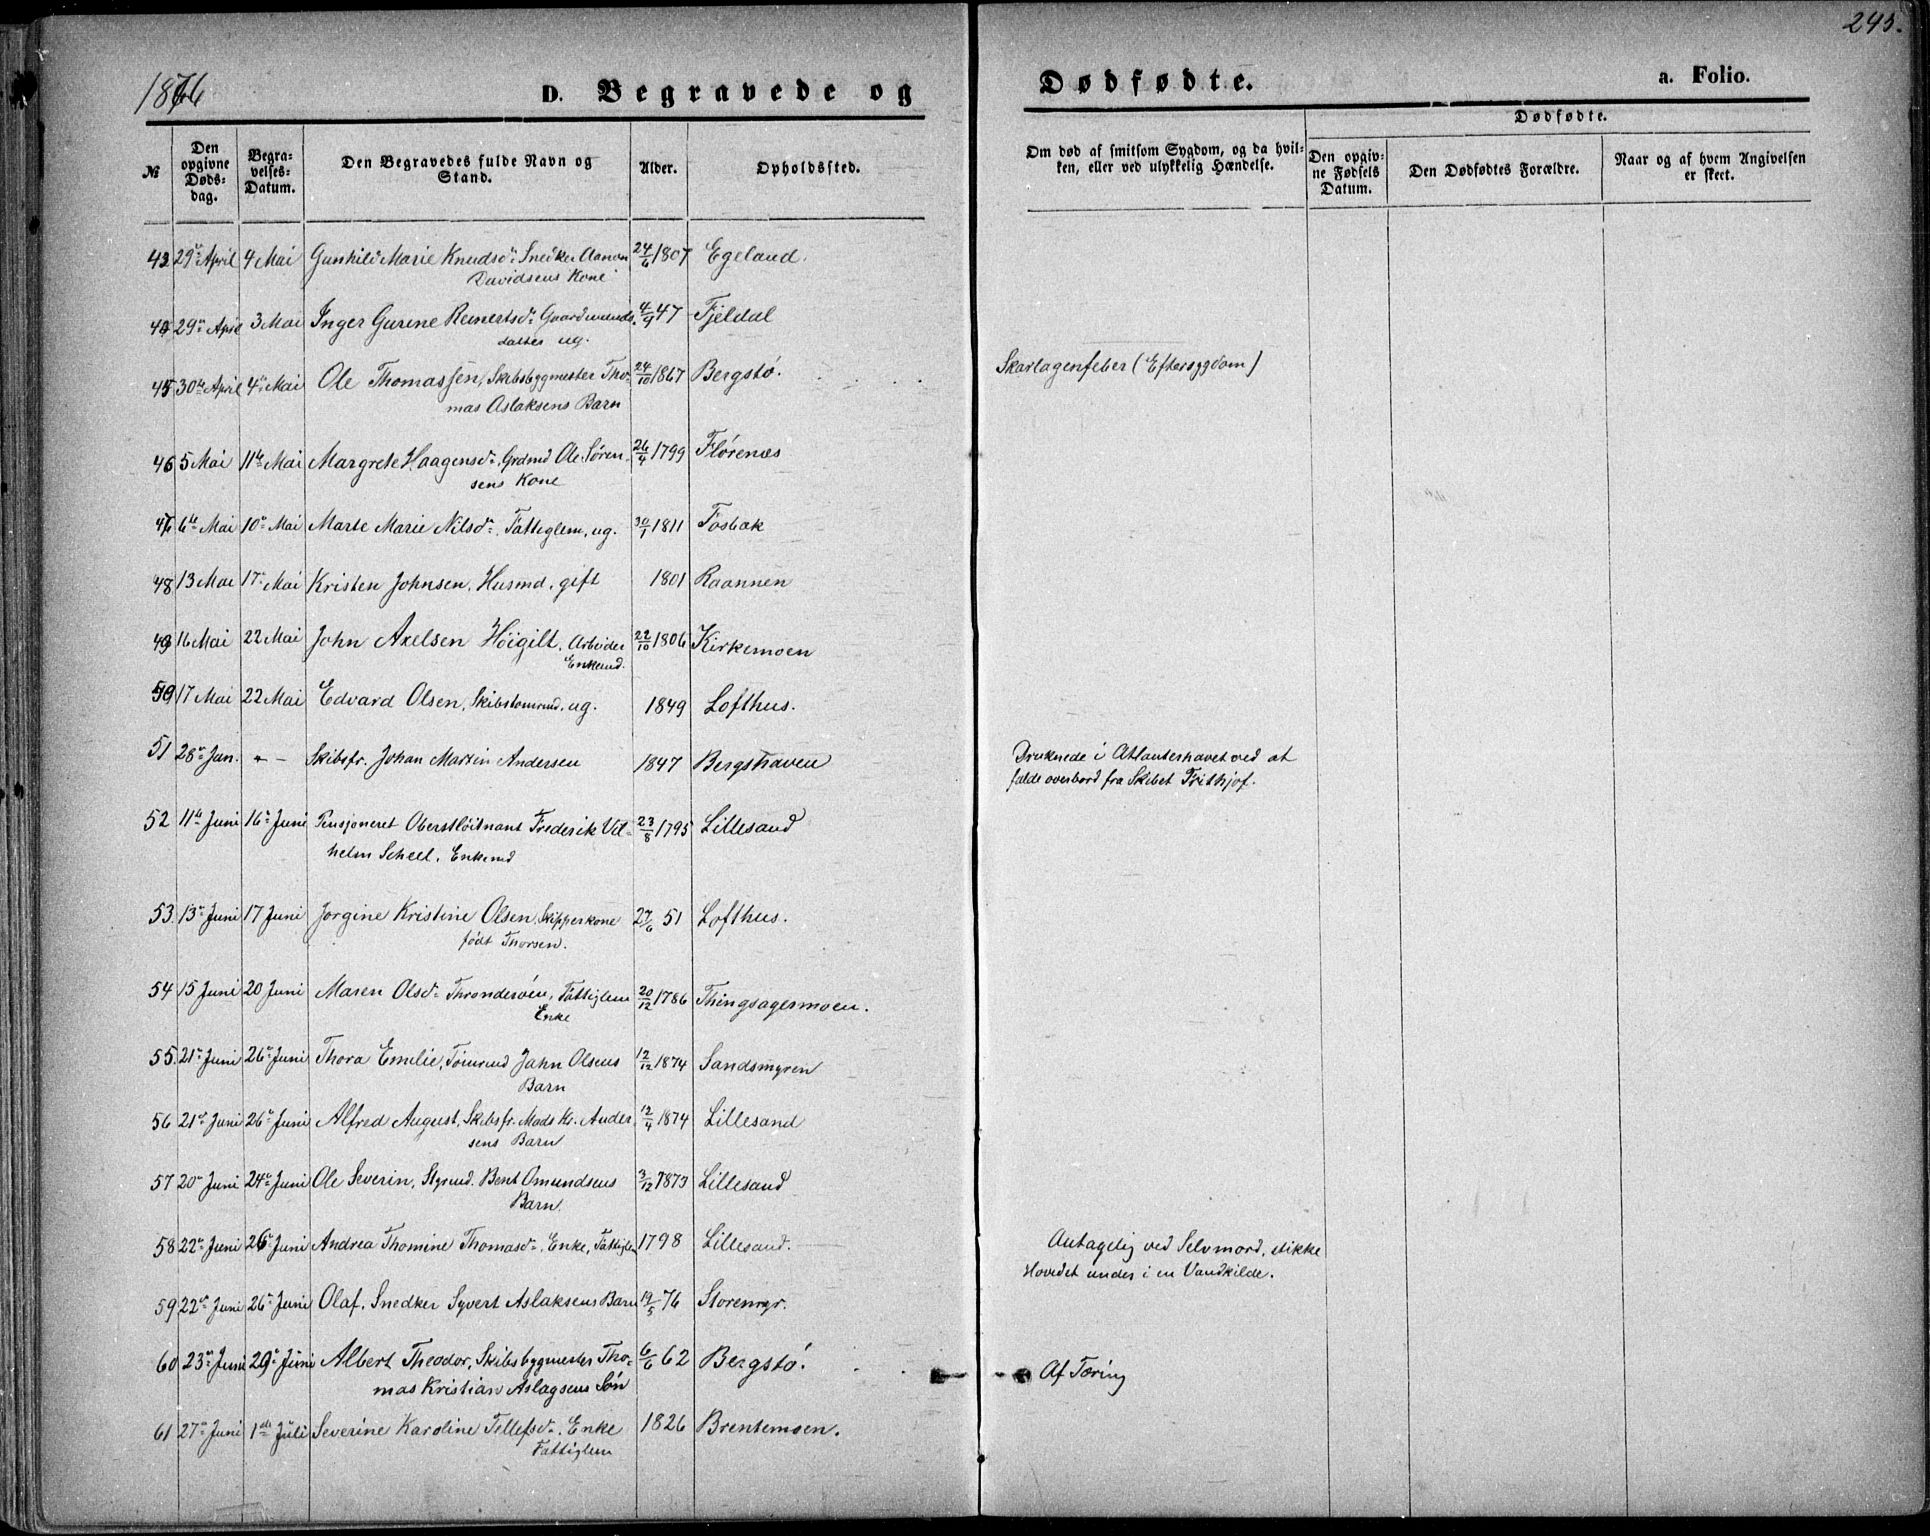 243.
1876
D. Begravede og
Dødfødte.
a. Folio.
№
Den opgivne Døds-dag.
Begra-velses-Datum.
Den Begravedes fulde Navn og Stand.
Alder.
Opholdssted.
Om død af smitsom Sygdom, og da hvil-ken, eller ved ulykkelig Hændelse.
Dødfødte.
Den opgiv-ne Fødsels Datum.
Den Dødfødtes Forældre.
Naar og af hvem Angivelsen er skeet.
43 29 April 4 Mai Gunhild Marie Knudsd: Snedker Aanon 24/6 1807 Egeland.
Davidsens Kone
44 29 April 3 Mai Inger Gurine Reinertsd: Gaardmands- 4/9 47 Fjeldal
datter ug.
45 30te April 4 Mai Ole Thomassen, Skibsbygmester Tho- 24/10 1867 Bergstö. Skarlagenfeber (Eftersygdom)
mas Aslaksens Barn
46 5 Mai 11te Mai Margrete Haagensd: Grdmd Ole Sören- 26/4 1799 Flörenæs
sens Kone
47 6te Mai 10 Mai Marte Marie Nilsd: Fattiglem, ug. 30/1 1811 Fosbæk
48 13 Mai 17 Mai Kristen Johnsen, Husmd, gift 1801 Raannen
49 16 Mai 22 Mai John Axelsen Höigilt, Arbeider 22/10 1806 Kirkemoen
Enkemd.
50 17 Mai 22 Mai Edvard Olsen, Skibstömmd, ug. 1849 Lofthus.
51 28 Jan. - - Skibsfr. Johan Martin Andersen 1847 Bergshaven Druknede i Atlanterhavet ved at
falde overbord fra Skibet Frithjof.
52 11te Juni 16 Juni Pensjoneret Oberstlöitnant Frederik Vil- 23/8 1795 Lillesand
helm Scheel, Enkemd
53. 13 Juni 17 Juni Jorgine Kristine Olsen, Skipperkone 27/6 51 Lofthus.
födt Thorsen.
54 15 Juni 20 Juni Maren Olsd: Fattiglem 20/12 1786 Thingsagermoen.
Enke
55. 21 Juni 26 Juni Thora Emilie, Tömmd Jahn Olsens 12/12 1874 Sandsmyren
Barn
56 21 Juni 26 Juni Alfred August, Skibsfr. Mads Kr. Ander 12/4 1874 Lillesand
sens Barn
57 20 Juni 24 Juni Ole Severin, Styrmd. Bent Omundsens 3/12 1873 Lillesand
Barn.
58 22 Juni 26 Juni Andrea Thomine Thomasd:, Enke, Fattiglem 1798 Lillesand. Antagelig ved Selvmord, stikke
Hovedet under i en Vandkilde.
59 22 Juni 26 Juni Olaf, Snedker Syvert Aslaksens Barn 19/5 76 Storemyr.
60 23 Juni 29 Juni Albert Theodor, Skibsbygmester Tho- 6/6 62 Bergstö. Af Tæring
mas Kristian Aslagsens Sön
61 27 Juni 1ste Juli Severine Karoline Tellefsd:, Enke 1826 Brentemoen.
Fattiglem